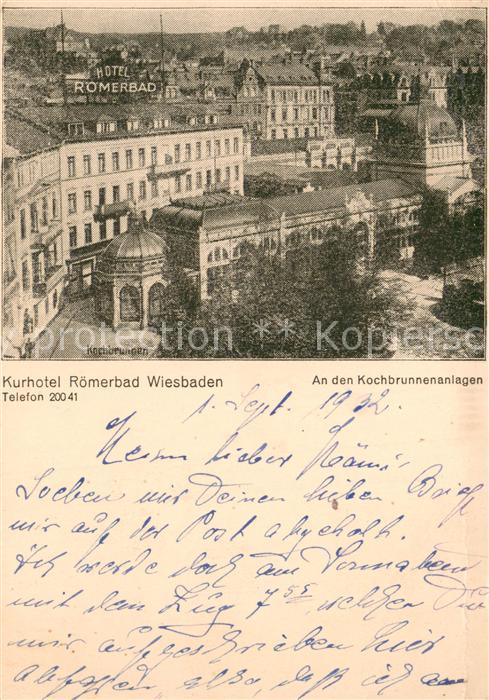 HOTEL
RÖMERBAD
Kochbrunnen
Kopierschutz-Protection ** Kopiersc
Kurhotel Römerbad Wiesbaden
An den Kochbrunnenanlagen
Telefon 20041
1. Sept. 1932.
lieber
Soeben mir Deinen lieben Brief
mir auf der Post abgeholt.
Ich werde doch am Sonnabend
mit dem Zug 7 55 welchen Du
mir aufgeschrieben hier
abfahren, also, daß ich am